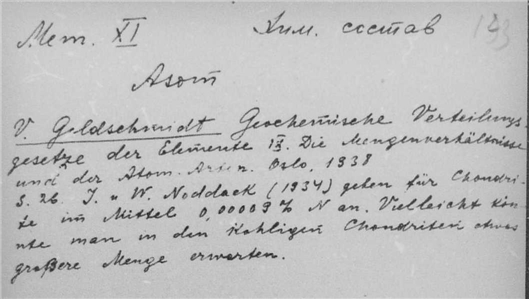 Мет. XI Хим. состав 193
Азот
V. Goldschmidt Geochemische Verteilungs
gesetze der Elemente IX. Die Mengenverhältnisse
und der Atom-Arten. Oslo, 1938
S. 26 I. u W. Noddack (1934) geben für Chondri-
te im Mittel 0,00009% N an. Vielleicht kön-
nte man in den Kohligen Chondriten etwas
großere Menge erwarten.